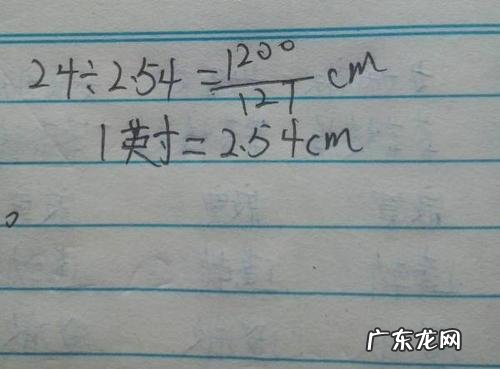 24÷2.54=1200/127 cm
1英寸=2.54cm
。
广东龙网